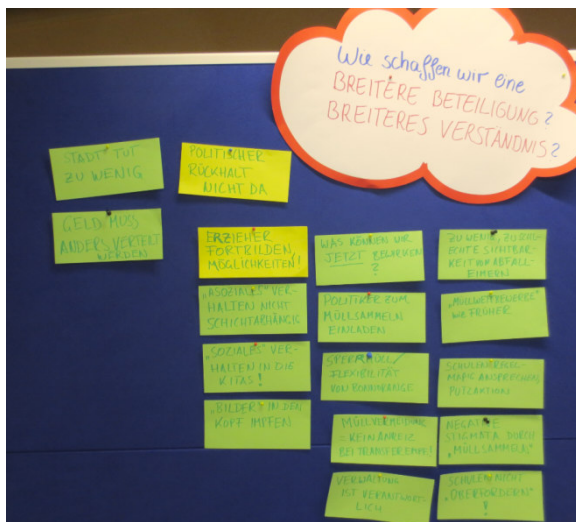 Wie schaffen wir eine
BREITERE BETEILIGUNG?
BREITERES VERSTÄNDNIS?
STADT TUT
ZU WENIG
POLITISCHER
RÜCKHALT
NICHT DA
GELD MUSS
ANDERS VERTEILT
WERDEN
ERZIEHER
FORTBILDEN,
MÖGLICHKEITEN!
„ASOZIALES" VER-
HALTEN NICHT
SCHICHTABHÄNGIG
„SOZIALES" VER-
HALTEN IN DIE
KITAS!
„BILDER" IN DEN
KOPF IMPFEN
WAS KÖNNEN WIR
JETZT BEWIRKEN
?
POLITIKER ZUM
MÜLLSAMMELN
EINLADEN
SPERRMÜLL/
FLEXIBILITÄT
VON BONNORANGE
MÜLLVERMEIDUNG
= KEIN ANREIZ
BEI TRANSFEREMPF.!
VERWALTUNG
IST VERANTWORT-
LICH
ZU WENIG, ZU
SICHTBAR-
KEIT ABFALL-
EIMERN
WIE FRÜHER
SCHULEN REGEL-
MÄßIG ANSPRECHEN,
PUTZAKTION
NEGATIVE
STIGMATA DURCH
„MÜLLSAMMELN"
SCHULEN NICHT
„ÜBERFORDERN"
!